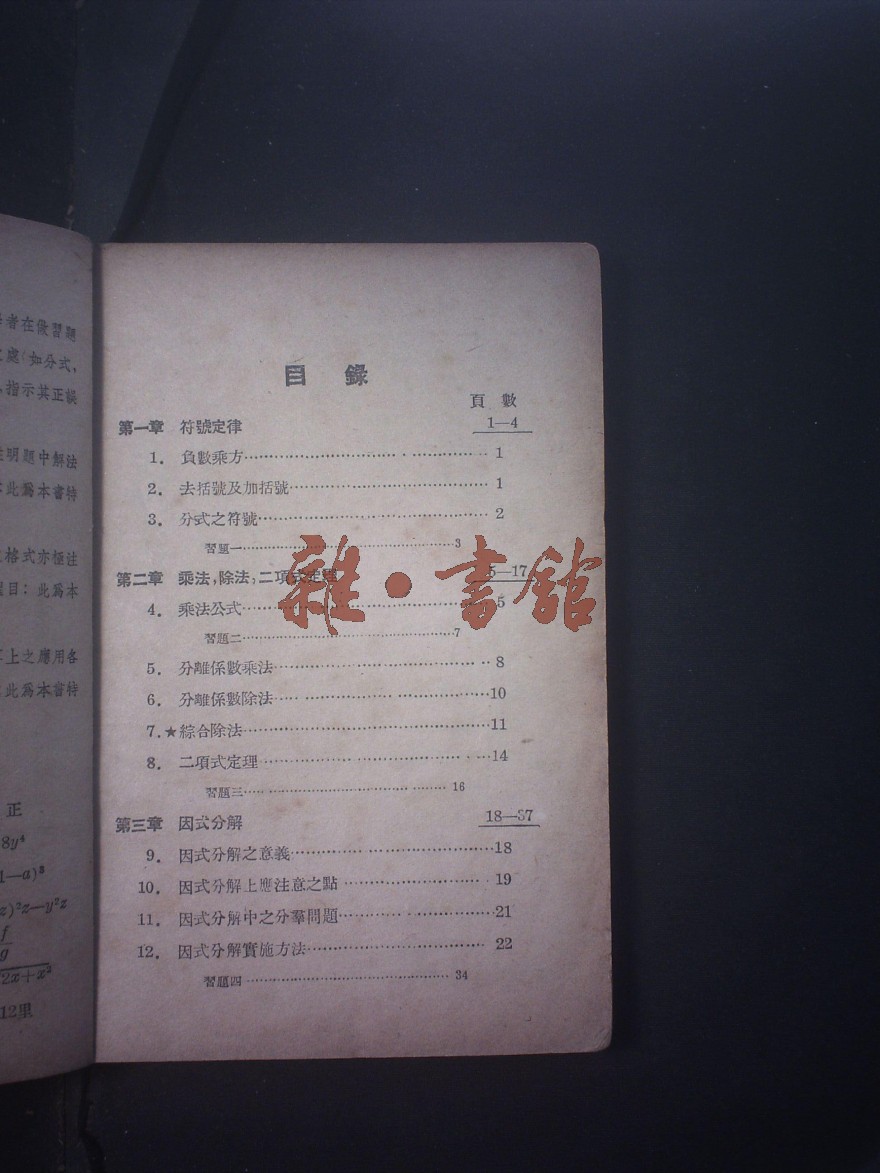 者在做習題
處(如分式,
指示其正誤
明題中解法
此爲本書特
格式亦極注
目:此爲本
上之應用各
此爲本書特
正
8y⁴
1—a)³
z)²z—y²z
f
g
2x+x²
12里
目 錄
頁 數
第一章 符號定律 1—4
1. 負數乘方 1
2. 去括號及加括號 1
3. 分式之符號 2
習題一 3
第二章 乘法,除法,二項式定理 5—17
4. 乘法公式 5
習題二 7
5. 分離係數乘法 8
6. 分離係數除法 10
7.★綜合除法 11
8. 二項式定理 14
習題三 16
第三章 因式分解 18—37
9. 因式分解之意義 18
10. 因式分解上應注意之點 19
11. 因式分解中之分羣問題 21
12. 因式分解實施方法 22
習題四 34
雜·書館